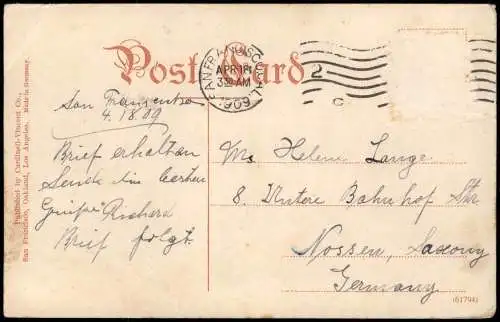 Post Card
SAN FRANCISCO, CAL.
APR 18
3 30 AM
1909
2
C
San Francisco
4. 18. 09
Brief erhalten
Sende die besten
Grüsse Richard
Brief folgt.
Ms Helene Lange
8. Untere Bahnhof Str
Nossen, Saxony
Germany
(6179)
Published by Cardinell-Vincent Co.,
San Francisco, Oakland, Los Angeles. Made in Germany.